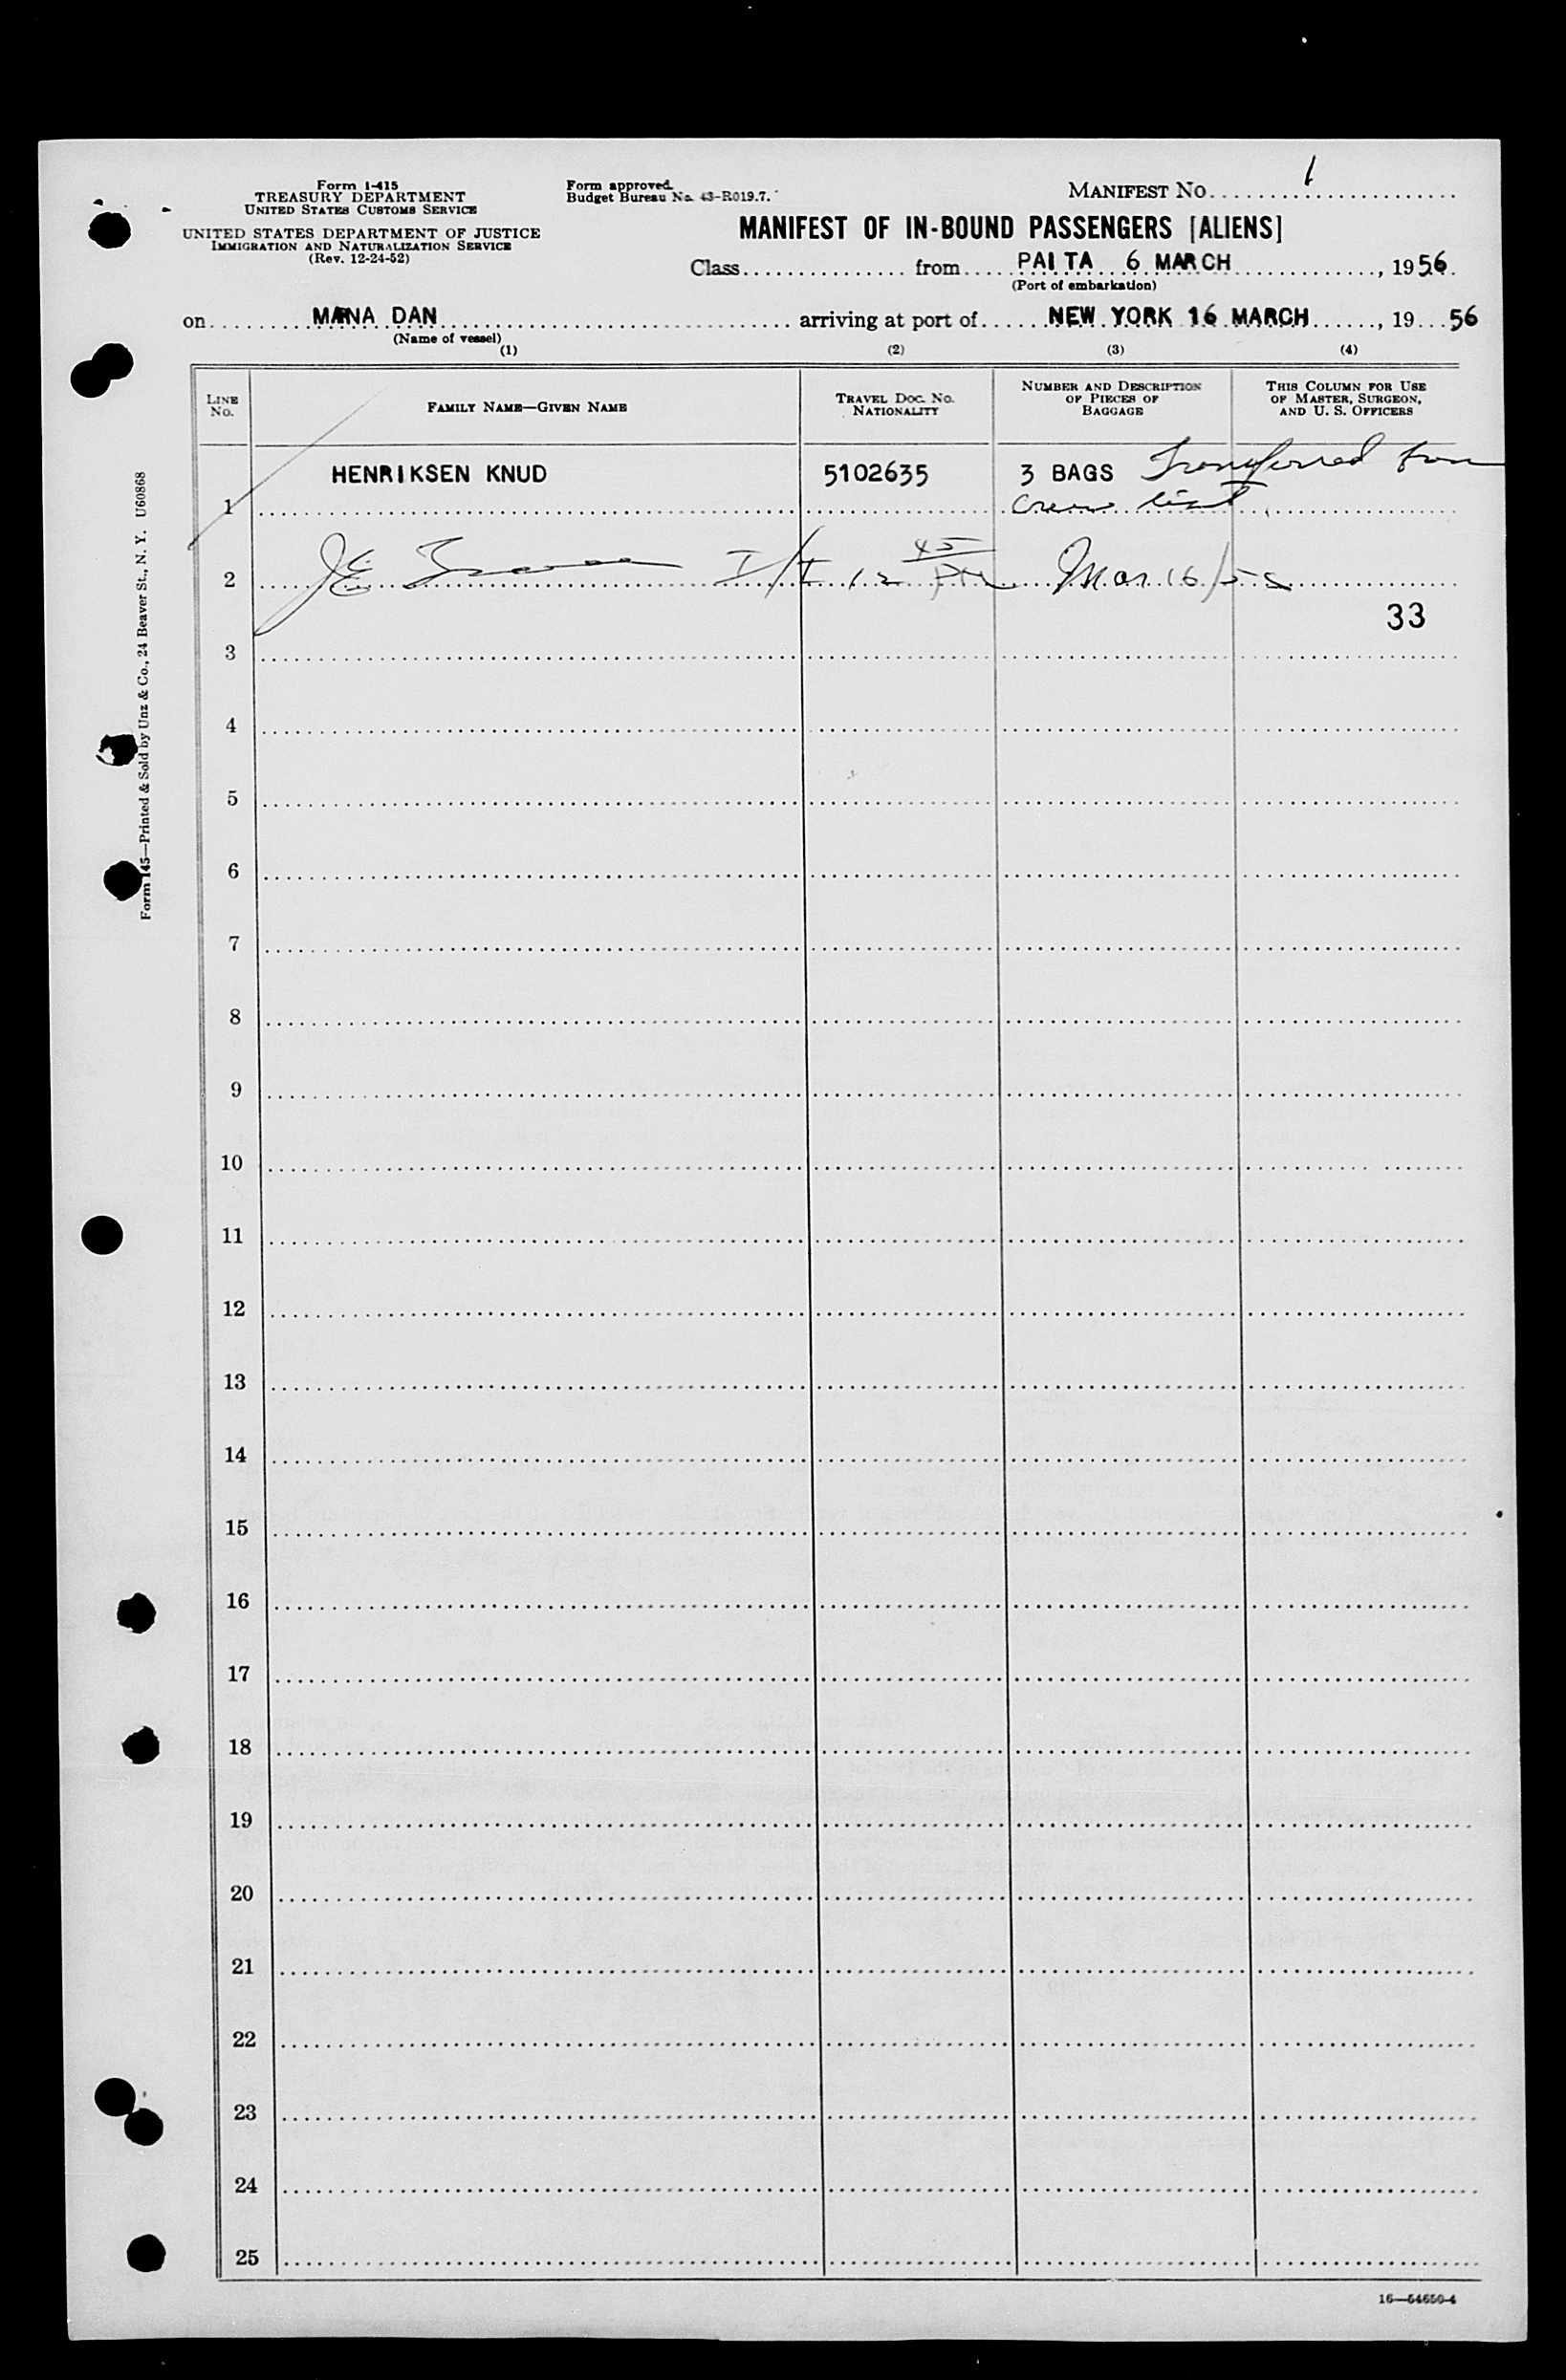 Form I-415
TREASURY DEPARTMENT
UNITED STATES CUSTOMS SERVICE
UNITED STATES DEPARTMENT OF JUSTICE
IMMIGRATION AND NATURALIZATION SERVICE
(Rev. 12-24-52)
Form approved.
Budget Bureau No. 43-R019.7.
MANIFEST NO. 1
MANIFEST OF IN-BOUND PASSENGERS [ALIENS]
Class from PAITA 6 MARCH, 1956.
(Port of embarkation)
on MANA DAN arriving at port of NEW YORK 16 MARCH, 19 56
(Name of vessel)
(1) (2) (3) (4)
LINE No. FAMILY NAME—GIVEN NAME TRAVEL DOC. NO. NATIONALITY NUMBER AND DESCRIPTION OF PIECES OF BAGGAGE THIS COLUMN FOR USE OF MASTER, SURGEON, AND U. S. OFFICERS
HENRIKSEN KNUD 5102635 3 BAGS Transferred from
1 crew list
2 JE I/I 12 45 PM Mar 16/56
33
3
4
5
6
7
8
9
10
11
12
13
14
15
16
17
18
19
20
21
22
23
24
25
16—54650-4
Form 145—Printed & Sold by Unz & Co., 24 Beaver St., N. Y. U60868